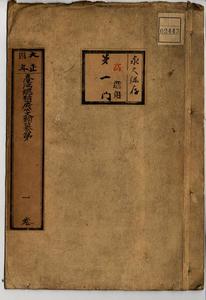 02443
永久保存
第一門
大正
四年
臺灣總督府公文類纂
一卷